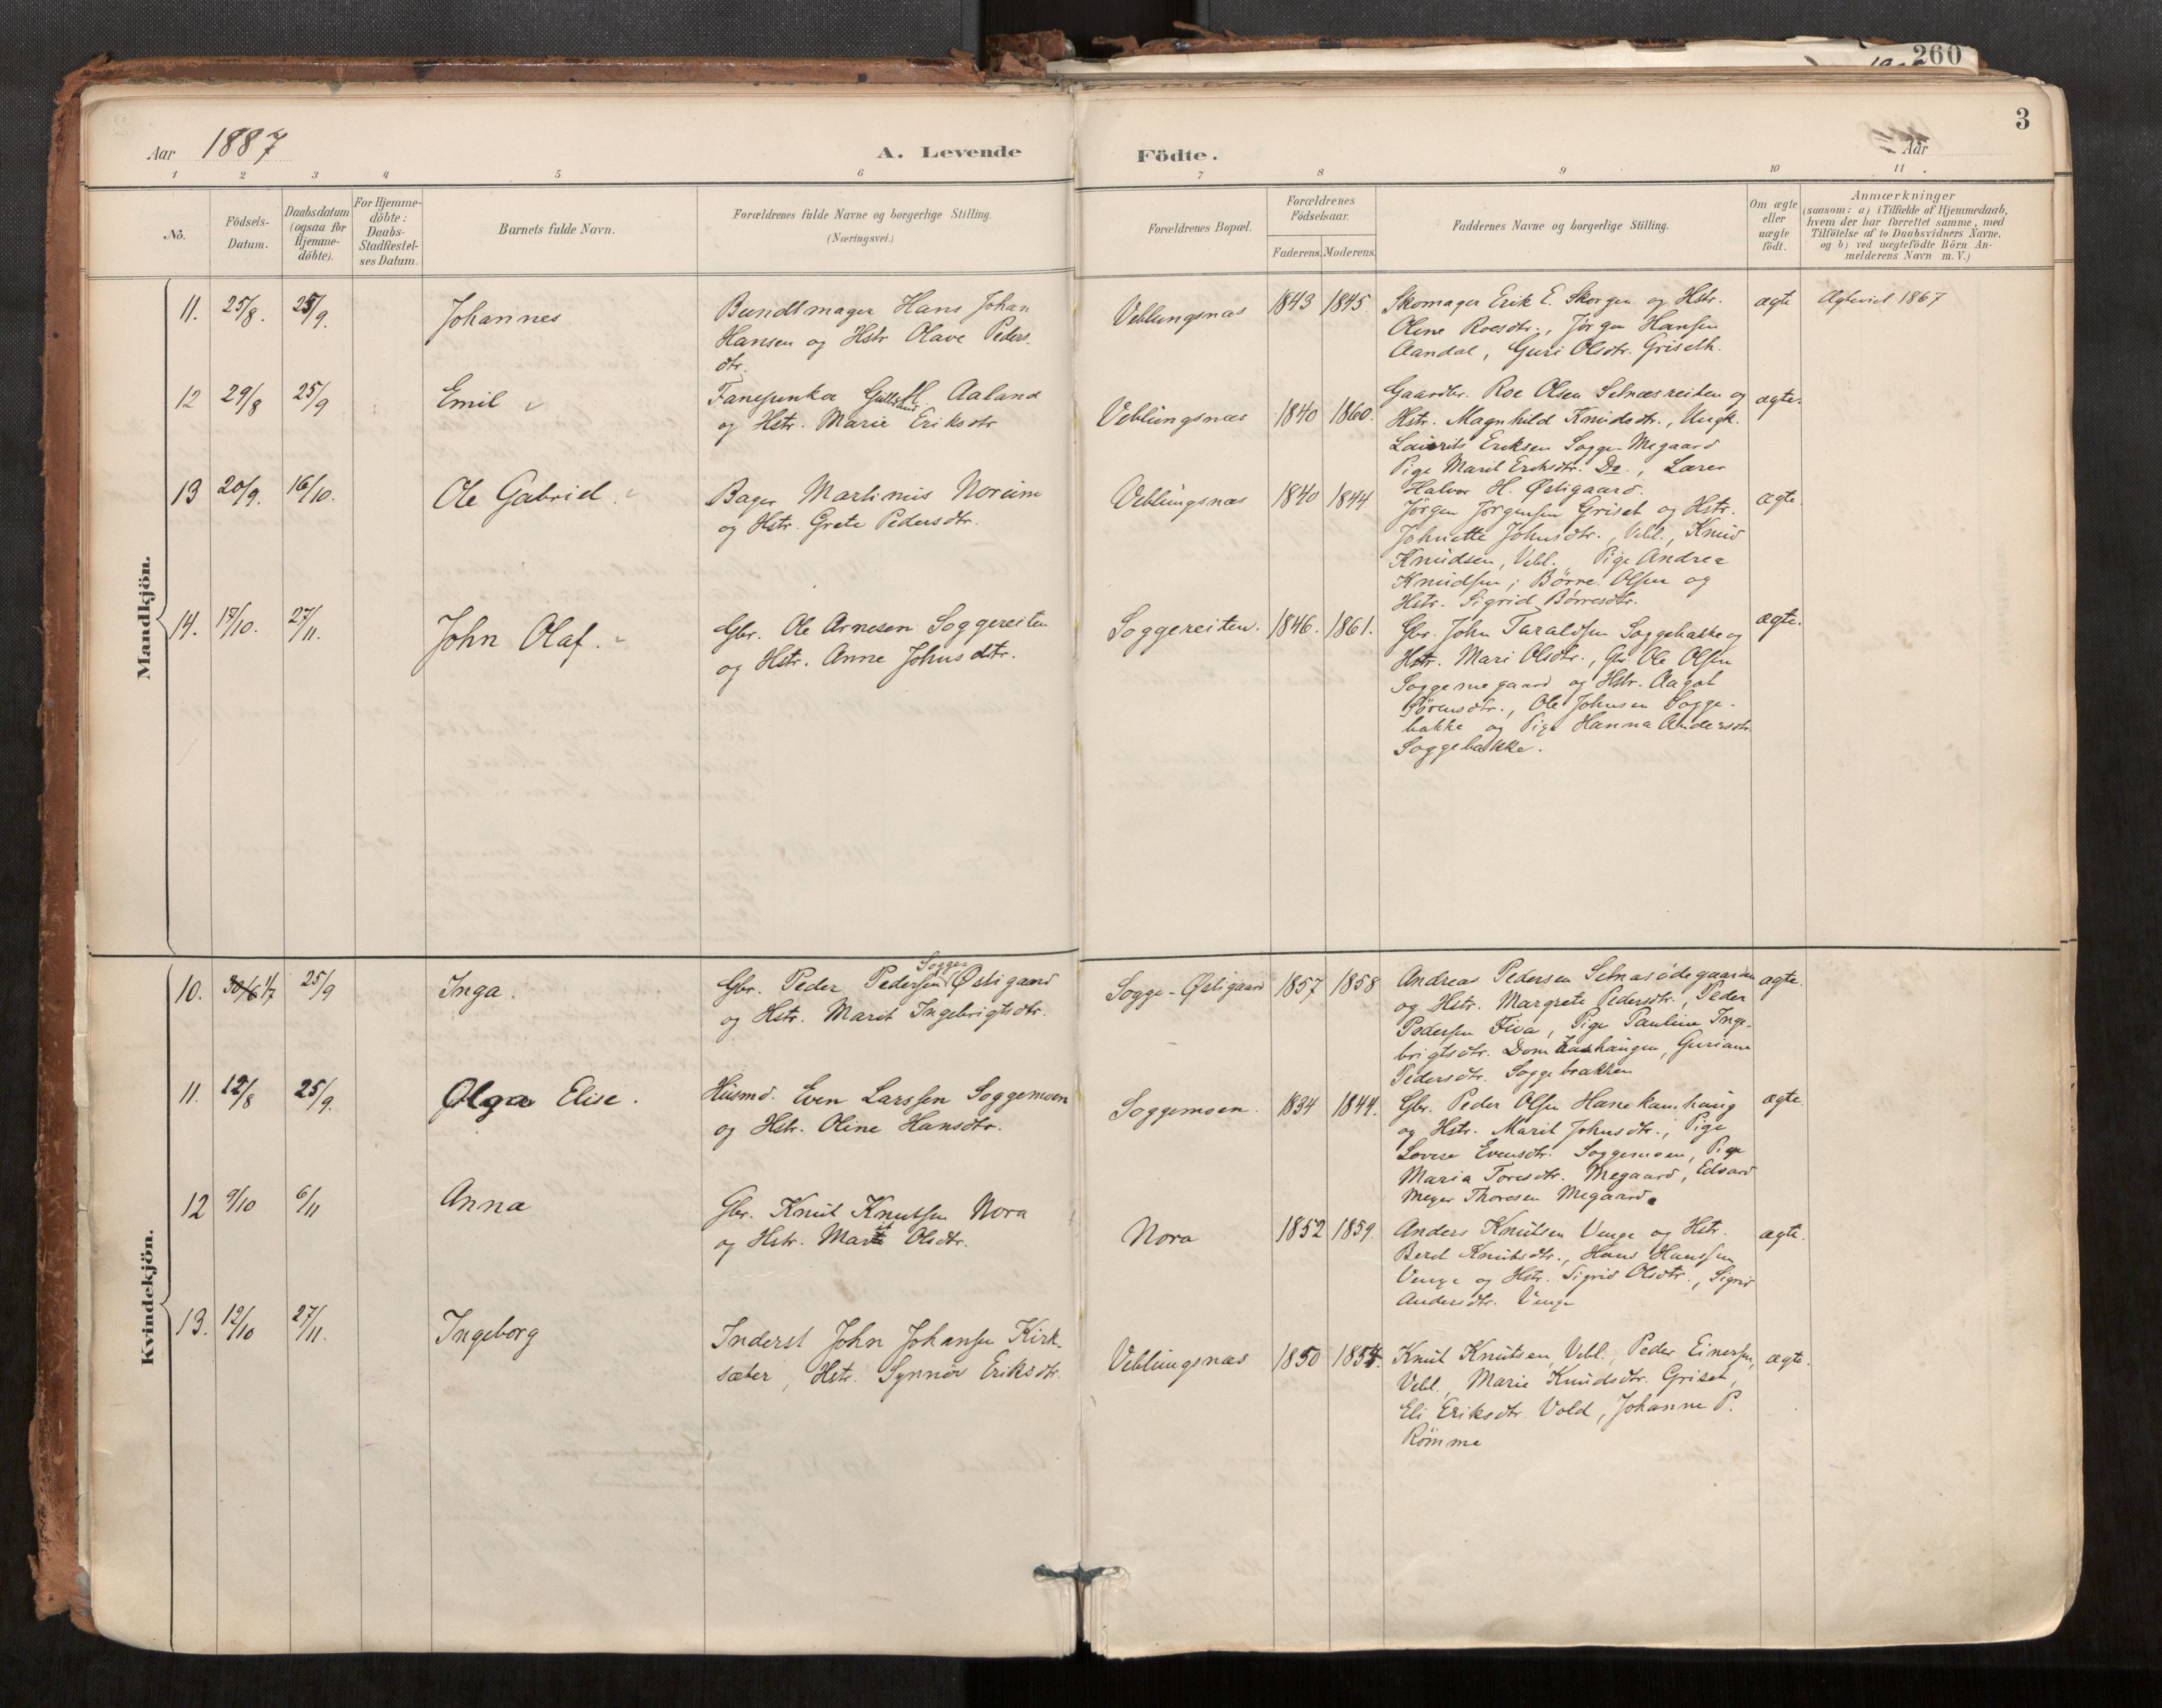 260
3
Aar 1887
A. Levende Födte.
Aar
1 2 3 4 5 6 7 8 9 10 11
No.
Födsels-Datum.
Daabsdatum (ogsaa for Hjemme-döbte).
For Hjemme-döbte: Daabs-Stadfæstel-ses Datum.
Barnets fulde Navn.
Forældrenes fulde Navne og borgerlige Stilling.
(Næringsvei.)
Forældrenes Bopæl.
Forældrenes Födselsaar.
Faderens. Moderens.
Faddernes Navne og borgerlige Stilling.
Om ægte eller uægte födt.
Anmærkninger
(saasom: a) i Tilfælde af Hjemmedaab, hvem der har forrettet samme, med Tilföielse af to Daabsvidners Navne, og b) ved uægtefödte Börn An-melderens Navn m. V.)
Mandkjön.
11. 25/8. 25/9. Johannes
Bundtmager Hans Johan
Hansen og Hstr Olave Peders.
dtr.
Veblungsnæs 1843 1845
Skomager Erik E. Skorgen og Hstr.
Oline Roesdtr., Jørgen Hansen
Aandal, Guri Olsdtr. Griseth.
ægte
Ægteviet 1867
12 29/8 25/9 Emil
Gulleik H. Aaland
og Hstr. Marie Eriksdtr
Veblungsnæs 1840 1860.
Gaardbr. Roe Olsen Setnæsreiten og
Hstr. Magnhild Knudsdtr., Ungk.
Laurits Eriksen Sogge-Megaard
Pige Marit Eriksdtr. Do., Lærer
Halvor H. Østigaard.
ægte.
13 20/9. 16/10. Ole Gabriel.
Bager Martinus Noreim
og Hstr. Grete Pedersdtr.
Veblungsnæs 1840 1844
Jørgen Jørgensen Griset og Hstr.
Johnette Johnsdtr., Vebl., Knud
Knudsen, Vebl., Pige Andrea
Knudsen; Børre Olsen og
Hstr. Sigrid Børresdtr.
ægte.
14. 17/10. 27/11. John Olaf.
Gbr. Ole Arnesen Soggereiten
og Hstr. Anne Johnsdtr.
Soggereiten. 1846. 1861.
Gbr. John Taraldsen Soggebakke og
Hstr. Mari Olsdtr., Gbr. Ole Olsen
Soggemegaard og Hstr. Aagot
Sørensdtr., Ole Johnsen Sogge-
bakke og Pige Hanna Andersdtr.
Soggebakke.
ægte.
Kvindekjön.
10. 30/6 1/7 25/9 Inga.
Sogge
Gbr. Peder Pedersen Østigaard
og Hstr. Marit Ingebrigtsdtr.
Sogge-Østigaard 1857 1858
Andreas Pedersen Setnæsødegaarden
og Hstr. Margrete Pedersdtr., Peder
Pedersen Fiva, Pige Pauline Inge-
brigtsdtr. Domaashaugen, Guriane
Pedersdtr. Soggebrakken
ægte.
11. 12/8 25/9. Olga Elise.
Husmd. Even Larssen Soggemoen
og Hstr. Oline Hansdtr.
Soggemoen. 1834 1844.
Gbr. Peder Olsen Hanekamhaug
og Hstr. Marit Johnsdtr., Pige
Lovise Evensdtr. Soggemoen, Pige
Maria Toresdtr. Megaard, Edvard
Meyer Thoresen Megaard.
ægte.
12 9/10 6/11 Anna
Gbr. Knut Knutsen Nora
og Hstr. Marit Olsdtr.
Nora 1852 1859.
Anders Knutsen Venge og Hstr.
Berit Knutsdtr., Hans Hanssen
Venge og Hstr. Sigrid Olsdtr., Sigrid
Andersdtr. Venge
ægte.
13. 12/10 27/11. Ingeborg
Inderst John Johansen Kirk-
sæter, Hstr. Synnøv Eriksdtr.
Veblungsnæs 1850 1854.
Knut Knutsen Vebl., Peder Einersen,
Vebl., Marie Knudsdtr. Griset,
Eli Eriksdtr. Vold, Johanne P.
Rømme
ægte.